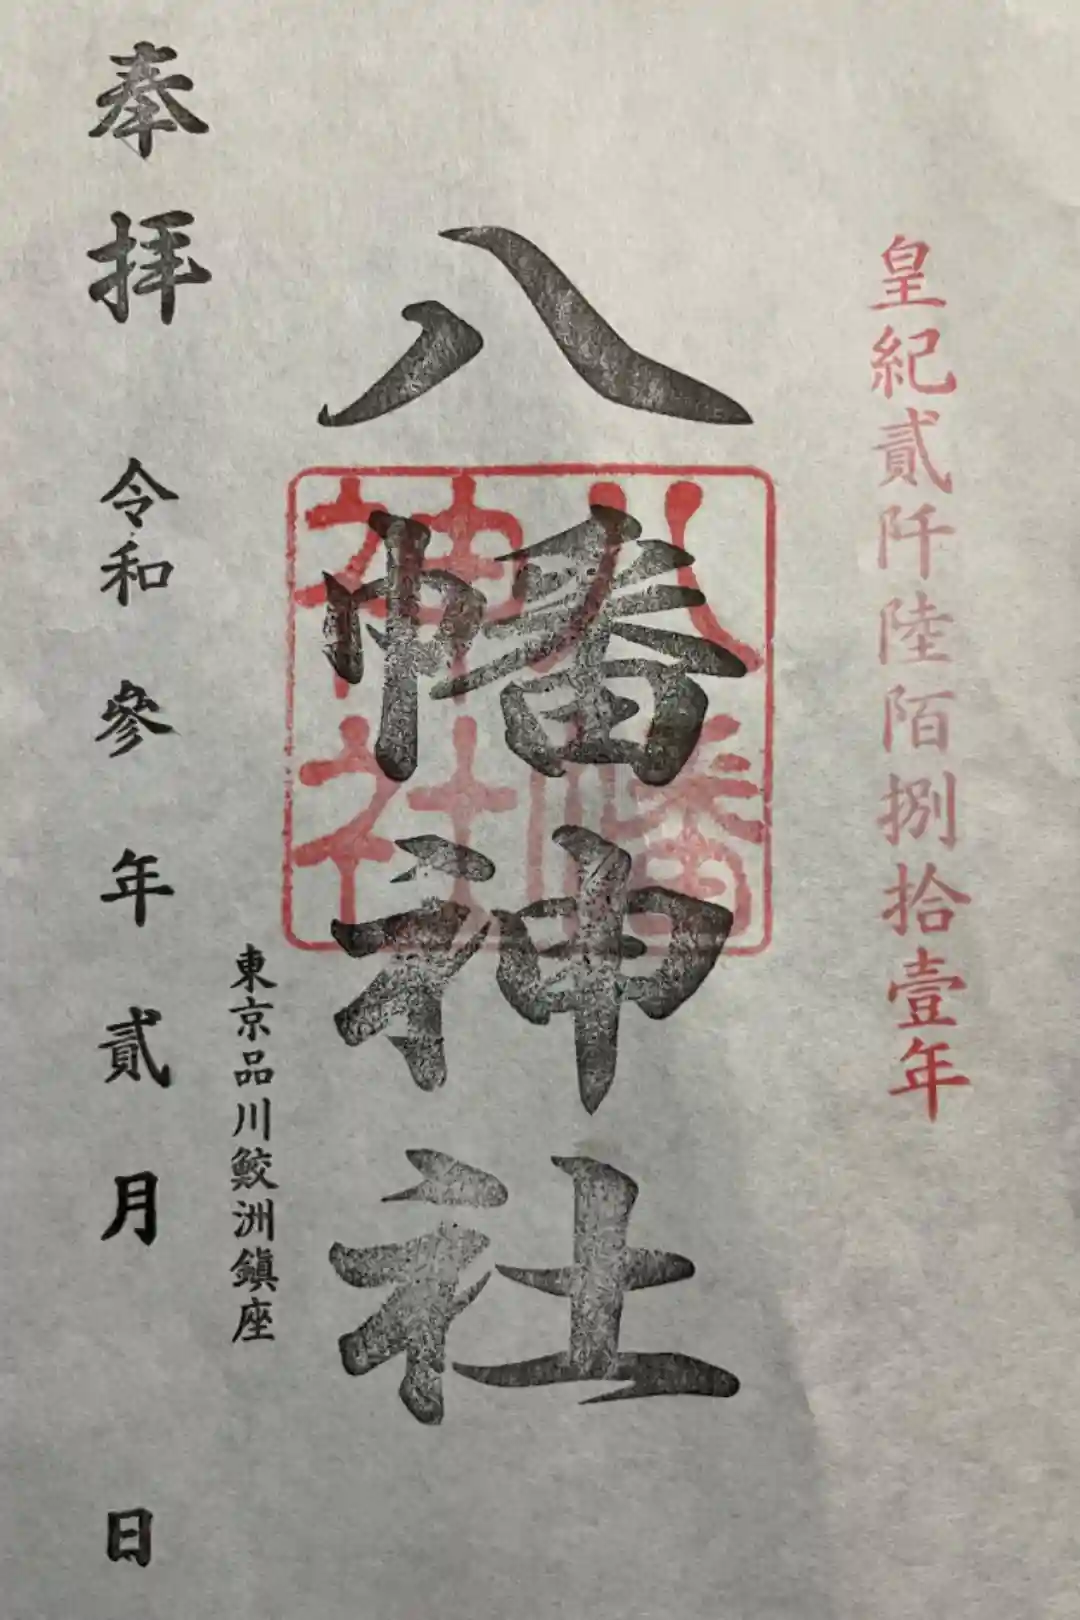 皇紀貳阡陸陌捌拾壹年
八幡神社
八幡
神社
東京品川鮫洲鎭座
奉拝
令和參年貳月 日